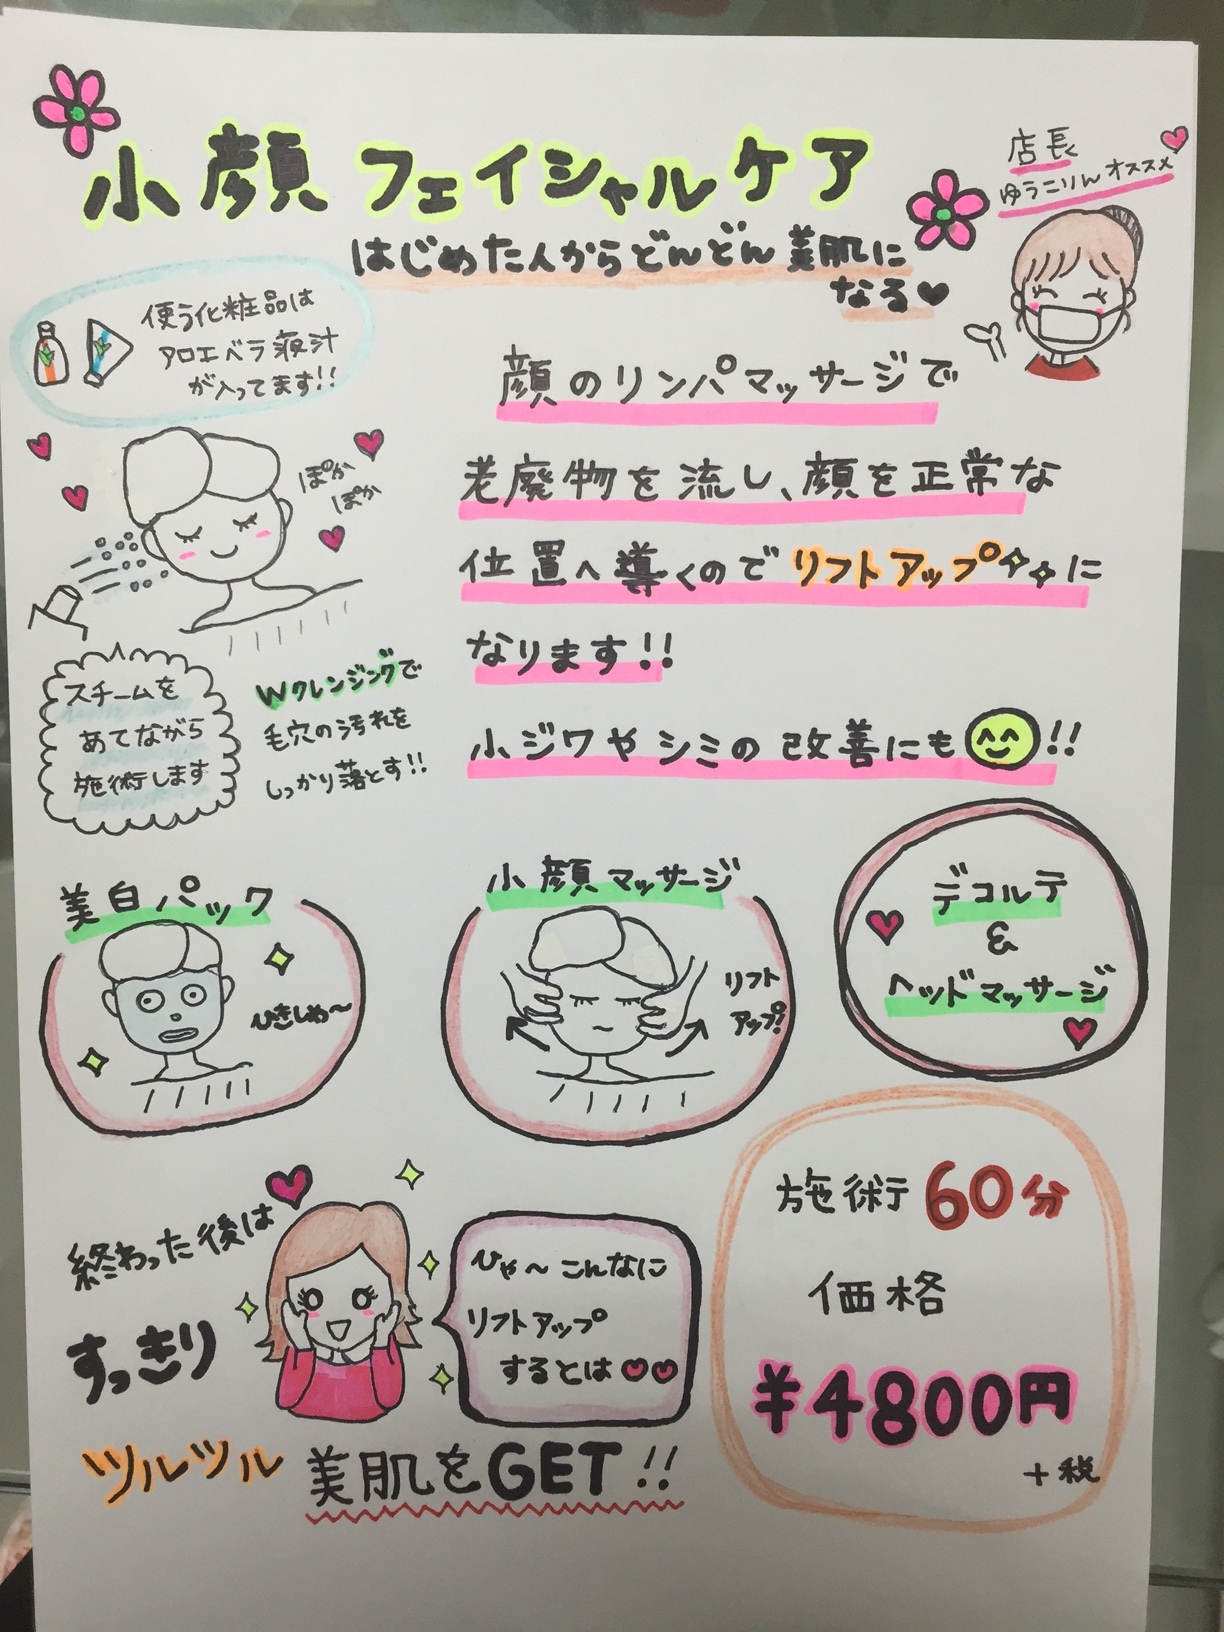 小顔フェイシャルケア
はじめた人からどんどん美肌に
なる♥
店長
ゆうこりんオススメ
使う化粧品は
アロエベラ液汁
が入ってます!!
顔のリンパマッサージで
老廃物を流し、顔を正常な
位置へ導くのでリフトアップに
なります!!
小ジワやシミの改善にも!!
ぽか
ぽか
スチームを
あてながら
施術します
Wクレンジングで
毛穴の汚れを
しっかり落とす!!
美白パック
ひきしめ〜
小顔マッサージ
リフト
アップ!
デコルテ
&
ヘッドマッサージ
終わった後は
すっきり
ひゃ〜こんなに
リフトアップ
するとは♥♥
ツルツル 美肌をGET!!
施術60分
価格
¥4800円
+税